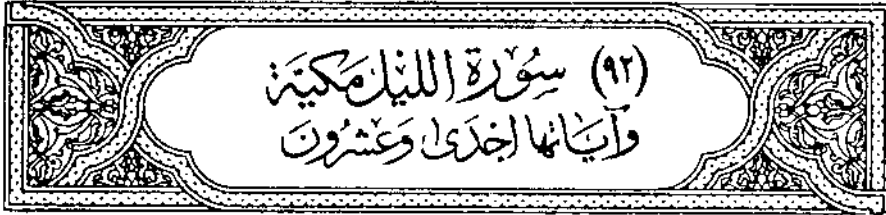 (٩٢) سُورَة اللَّيْل مَكيَّة
وَآيَاتهَا إحْدَى وَعشْرُونَ